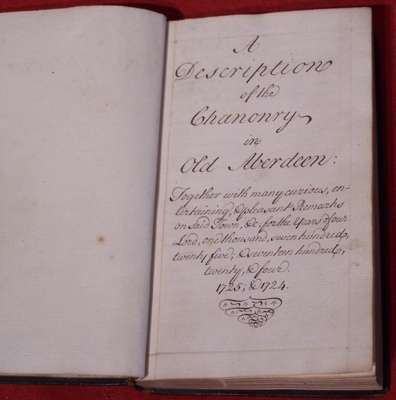 A
Description
of the
Chanonry
in
Old Aberdeen:
Together with many curious, en-
tertaining, & pleasant Remarks
on said Town, &c for the Years of our
Lord, one thousand, seven hundred,
twenty five; & seventeen hundred,
twenty, & four.
1725, & 1724.